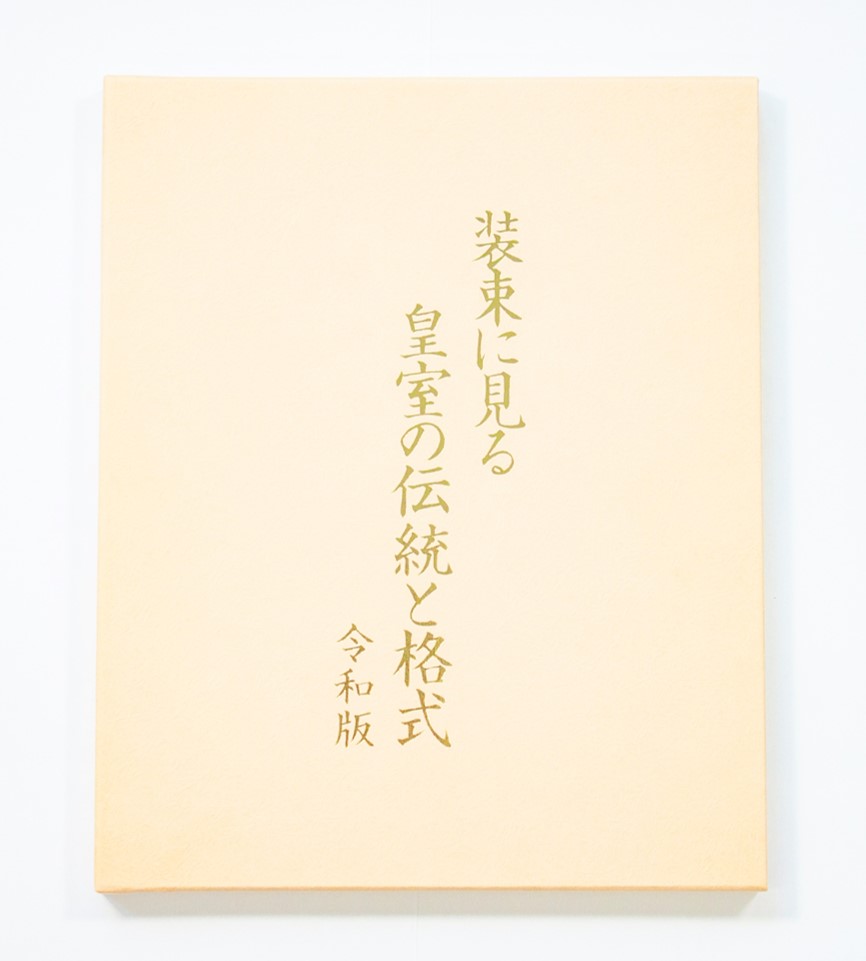 装束に見る
皇室の伝統と格式
令和版